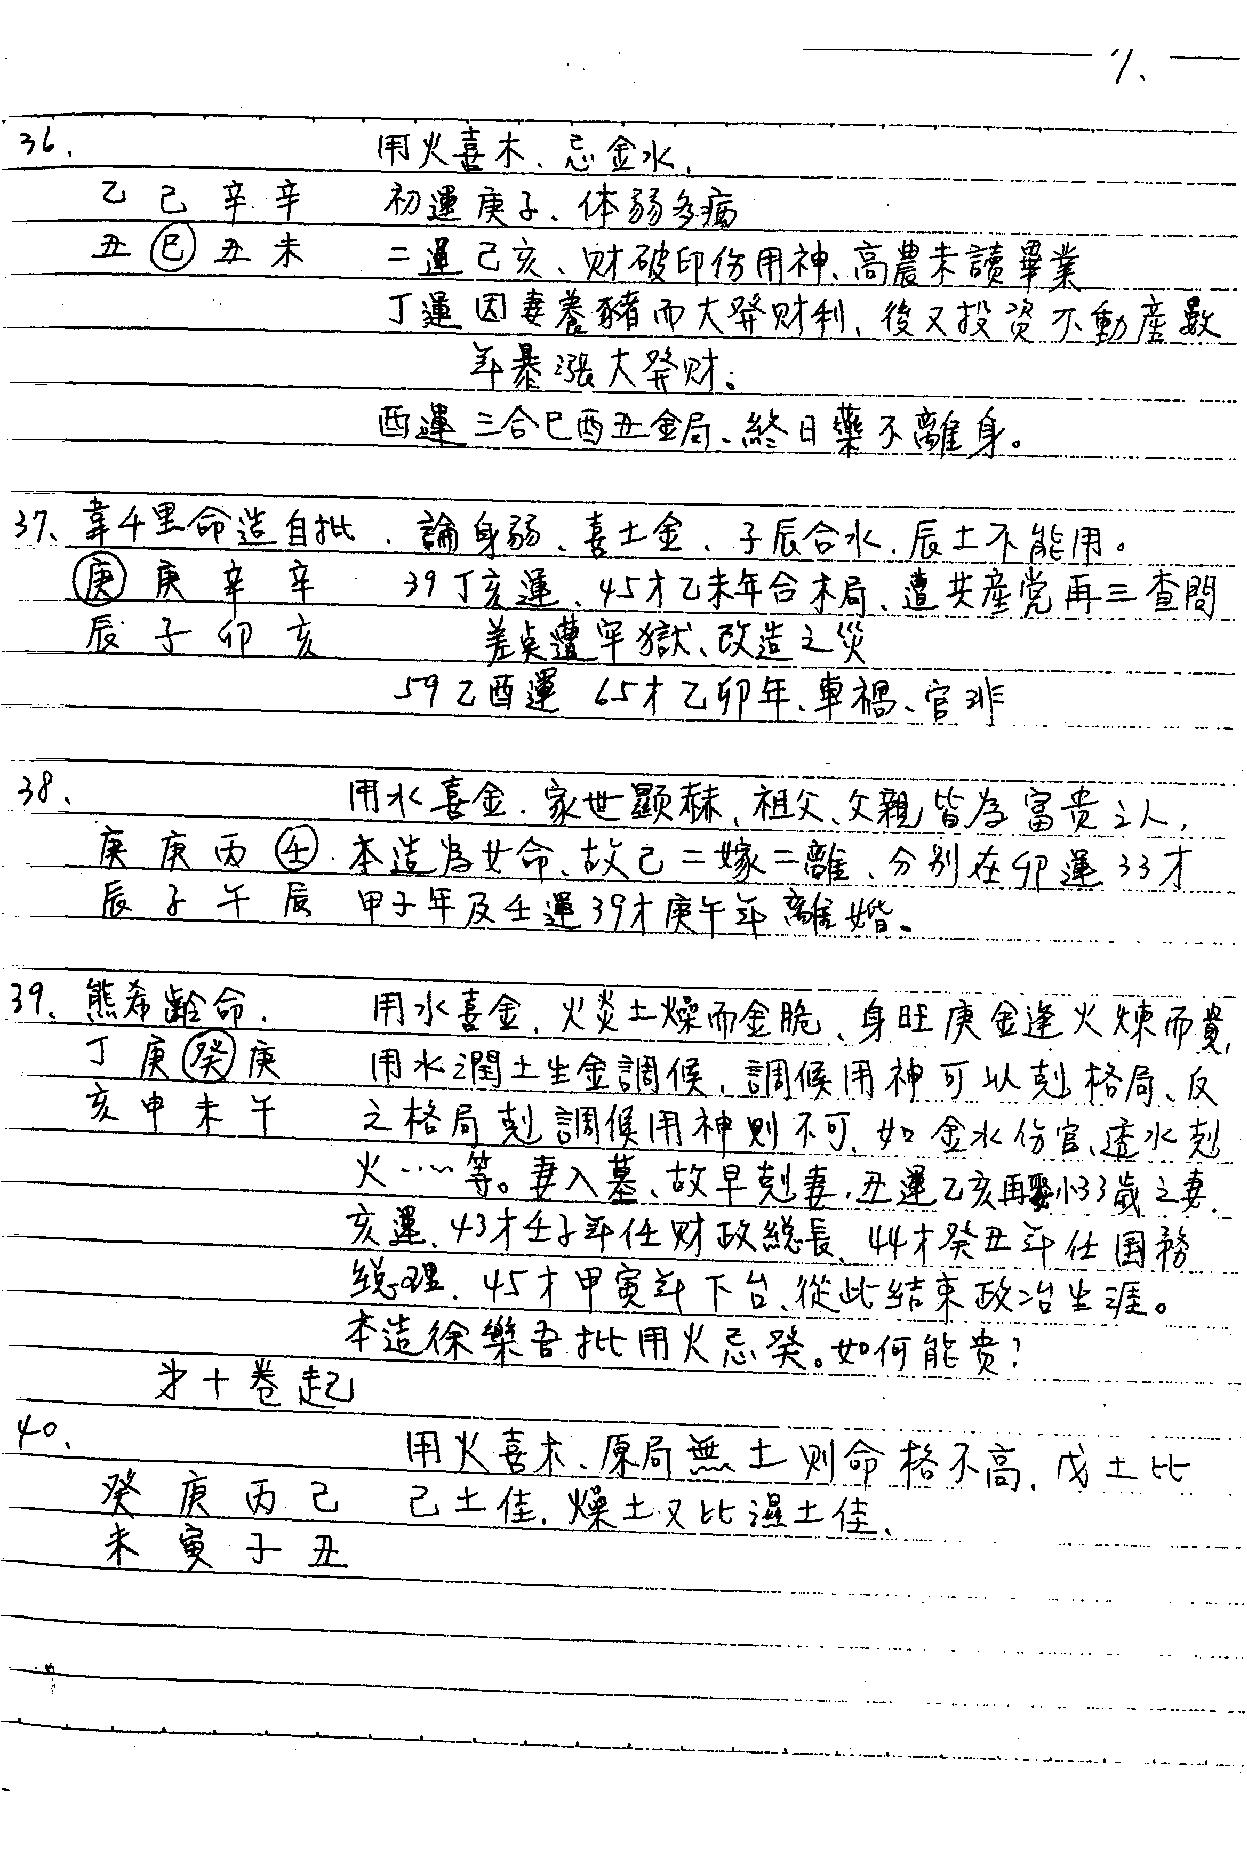 7、
36、 用火喜木、忌金水、
乙 己 辛 辛 初運庚子、体弱多病
丑 巳 丑 未 二運己亥、財破印伤用神、高農未讀畢業
丁運因妻養豬而大発財利、後又投資不動產數
年暴漲大発財。
酉運三合巳酉丑金局、終日藥不離身。
37、韋千里命造自批、論身弱、喜土金、子辰合水、辰土不能用。
庚 庚 辛 辛 39丁亥運、45才乙未年合木局、遭共產党再三查問
辰 子 卯 亥 差点遭牢獄、改造之災
59乙酉運 65才乙卯年、車禍、官非
38、 用水喜金、家世顯赫、祖父、父親皆為富贵之人、
庚 庚 丙 壬 本造為女命、故己二嫁二離、分别在卯運33才
辰 子 午 辰 甲子年及壬運39才庚午年離婚。
39、熊希齡命、 用水喜金、火炎土燥而金脆、身旺庚金逢火煉而貴、
丁 庚 癸 庚 用水潤土生金調候、調候用神可以剋格局、反
亥 申 未 午 之格局剋調候用神則不可、如金水伤官、透水剋
火……等。妻入墓、故早剋妻、丑運乙亥再娶小33歲之妻、
亥運、43才壬子年任財政総長、44才癸丑年任国務
総理、45才甲寅年下台、從此結束政治生涯。
本造徐樂吾批用火忌癸。如何能贵？
才十卷起
40、 用火喜木、原局無土則命格不高、戊土比
癸 庚 丙 己 己土佳、燥土又比濕土佳、
未 寅 子 丑